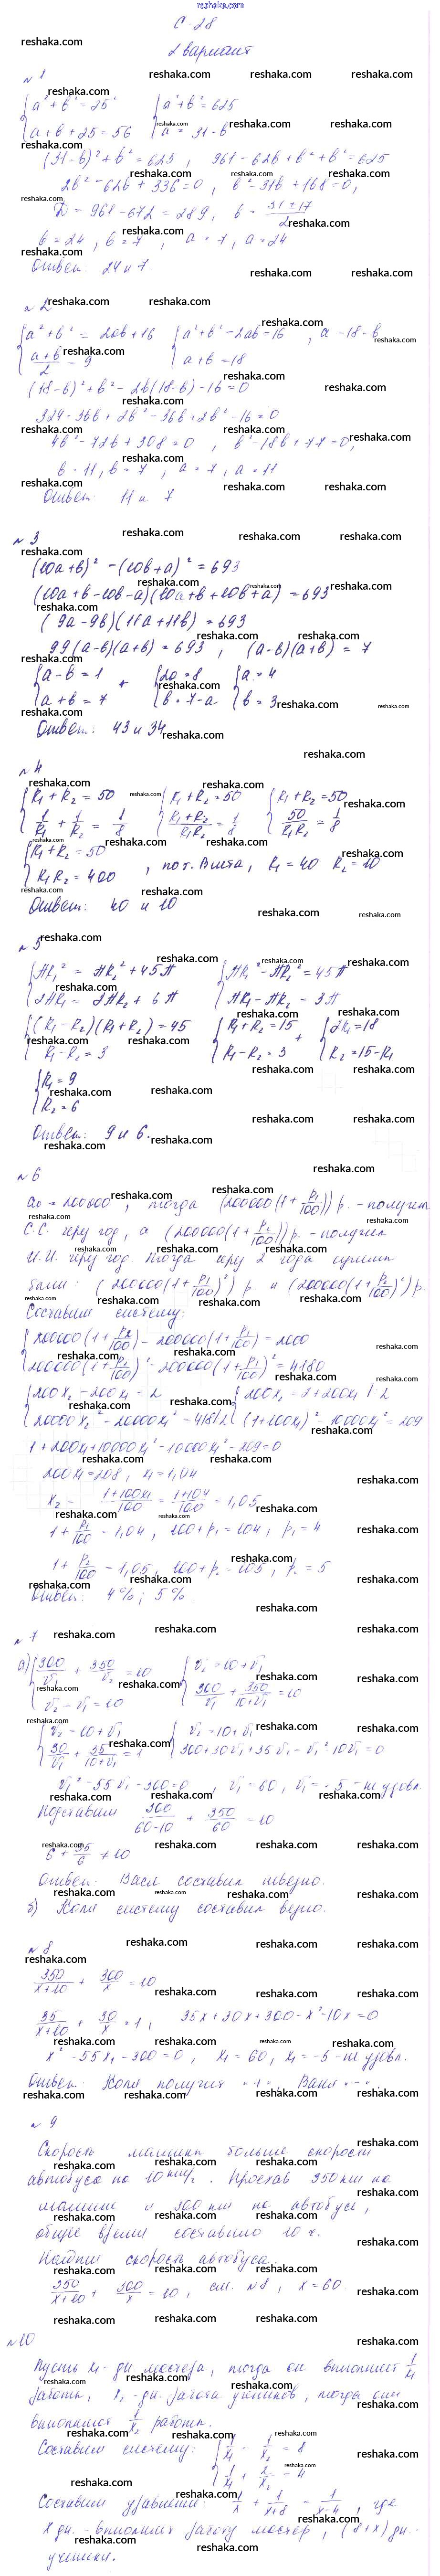 reshaka.com
С-28
2 вариант
№1
{a² + b² = 25² {a² + b² = 625
{a + b + 25 = 56 {a = 31 - b
(31-b)² + b² = 625, 961 - 62b + b² + b² = 625
2b² - 62b + 336 = 0, b² - 31b + 168 = 0,
D = 961 - 672 = 289, b = (31 ± 17)/2
b = 24, b = 7, a = 7, a = 24
Ответ: 24 и 7.
№2
{a² + b² = 2ab + 16 {a² + b² - 2ab = 16, a = 18 - b
{(a+b)/2 = 9 {a + b = 18
(18-b)² + b² - 2b(18-b) - 16 = 0
324 - 36b + 2b² - 36b + 2b² - 16 = 0
4b² - 72b + 308 = 0, b² - 18b + 77 = 0,
b = 11, b = 7, a = 7, a = 11
Ответ: 11 и 7
№3
(10a+b)² - (10b+a)² = 693
(10a+b-10b-a)(10a+b+10b+a) = 693
(9a-9b)(11a+11b) = 693
99(a-b)(a+b) = 693, (a-b)(a+b) = 7
{a - b = 1 + {2a = 8 {a = 4
{a + b = 7 {b = 7-a {b = 3
Ответ: 43 и 34
№4
{R₁ + R₂ = 50 {R₁ + R₂ = 50 {R₁ + R₂ = 50
{1/R₁ + 1/R₂ = 1/8 {(R₁+R₂)/(R₁R₂) = 1/8 {50/(R₁R₂) = 1/8
{R₁ + R₂ = 50
{R₁R₂ = 400, по т. Виета, R₁ = 40 R₂ = 10
Ответ: 40 и 10
№5
{πR₁² = πR₂² + 45π {πR₁² - πR₂² = 45π
{2πR₁ = 2πR₂ + 6π {πR₁ - πR₂ = 3π
{(R₁-R₂)(R₁+R₂) = 45 {R₁+R₂ = 15 + {2R₁ = 18
{R₁-R₂ = 3 {R₁-R₂ = 3 {R₂ = 15-R₁
{R₁ = 9
{R₂ = 6
Ответ: 9 и 6.
№6
a₀ = 200000, тогда (200000(1 + p₁/100)) р. - получит
С.С. через год, а (200000(1 + p₂/100)) р. - получит
И.И. через год. Тогда через 2 года суммы
были: (200000(1 + p₁/100)²) р. и (200000(1 + p₂/100)²) р.
Составим систему:
{200000(1 + p₂/100) - 200000(1 + p₁/100) = 2000
{200000(1 + p₂/100)² - 200000(1 + p₁/100)² = 4180
{200x₂ - 200x₁ = 2 {200x₂ = 2 + 200x₁ |:2
{20000x₂² - 20000x₁² = 418 |:2 {(1+100x₁)² - 10000x₁² = 209
1 + 200x₁ + 10000x₁² - 10000x₁² - 209 = 0
200x₁ = 208, x₁ = 1,04
x₂ = (1+100x₁)/100 = (1+104)/100 = 1,05
1 + p₁/100 = 1,04, 100 + p₁ = 104, p₁ = 4
1 + p₂/100 = 1,05, 100 + p₂ = 105, p₂ = 5
Ответ: 4%; 5%.
№7
а) {300/v₁ + 350/v₂ = 10 {v₂ = 10 + v₁
{v₂ - v₁ = 10 {300/v₁ + 350/(10+v₁) = 10
{v₂ = 10 + v₁ {v₂ = 10 + v₁
{30/v₁ + 35/(10+v₁) = 1 {300 + 30v₁ + 35v₁ - v₁² - 10v₁ = 0
v₁² - 55v₁ - 300 = 0, v₁ = 60, v₁ = -5 - не удовл.
Подставим 300/(60-10) + 350/60 = 10
6 + 35/6 ≠ 10
Ответ: Вася составил неверно.
б) Коля систему составил верно.
№8
350/(x+10) + 300/x = 10
35/(x+10) + 30/x = 1, 35x + 30x + 300 - x² - 10x = 0
x² - 55x - 300 = 0, x₁ = 60, x₁ = -5 - не удовл.
Ответ: Коля получит "+", Ваня "-"
№9
Скорость машины больше скорости
автобуса на 10 км/ч. Проехав 350 км на
машине и 300 км на автобусе,
общее время составило 10 ч.
Найдти скорость автобуса.
350/(x+10) + 300/x = 10, см. №8, x = 60
№10
Пусть x₁ - дн. мастера, тогда он выполняет 1/x₁
работы, x₂ - дн. работа учеников, тогда они
выполняют 1/x₂ работы.
Составим систему: {1/x₁ - 1/x₂ = 8
{1/x₁ + 2/x₂ = 4
Составим уравнение: 1/x + 1/(x+8) = 1/(x-4), где
x дн. - выполняет работу мастер, (8+x) дн. -
ученики.